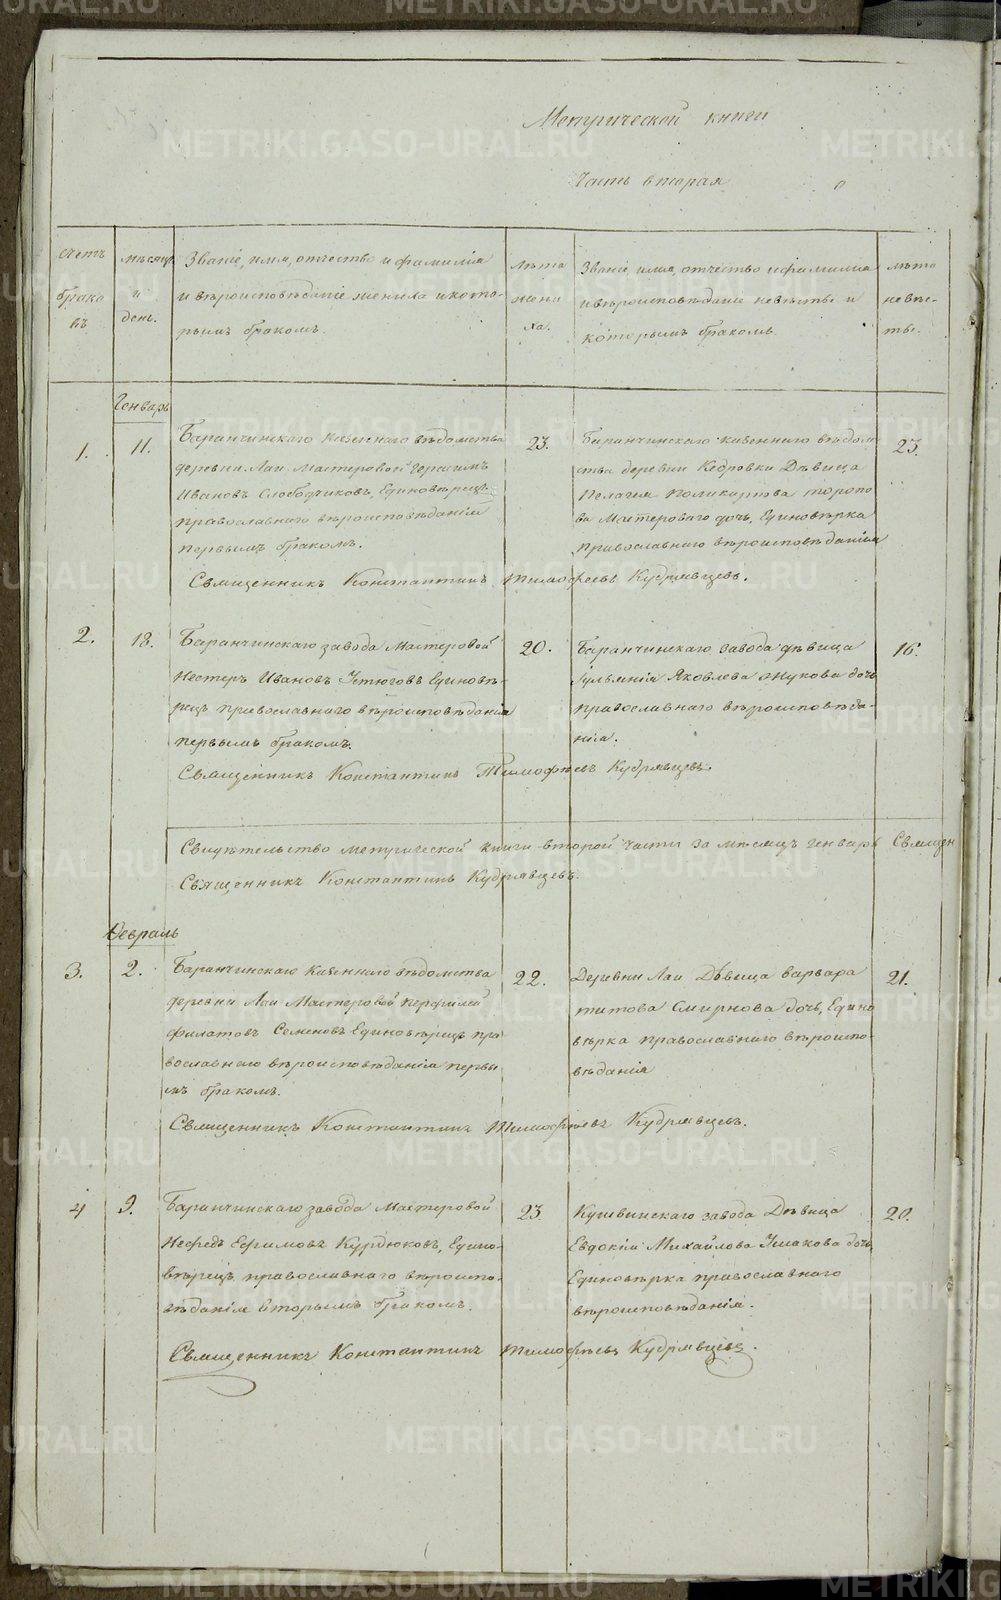 Метрической книги
Часть вторая о
Счетъ
брако
въ
мѣсяцъ
и
день.
Званіе, имя, отчество и фамилія
и вѣроисповѣданіе жениха и кото-
рымъ бракомъ.
лѣта
жени
ха.
Званіе, имя, отчество и фамилия
и вѣроисповѣдание невѣсты и
которымъ бракомъ
лѣта
невѣс-
ты.
Генварь
1.
11.
Баранчинскаго казеннаго вѣдомства
деревни Лаи Мастеровой Герасимъ
Ивановъ Слободчиковъ, Единовѣрецъ
православнаго вѣроисповѣданія
первымъ бракомъ.
23.
Баранчинскаго казеннаго вѣдом
ства деревни Кедровки Дѣвица
Пелагея Поликарпова Торопо
ва Мастероваго дочь, Единовѣрка
православнаго вѣроисповѣданія
23.
Священникъ Константинъ Тимофеевъ Кудрявцевъ.
2.
18.
Баранчинскаго завода Мастеровой
Нестеръ Ивановъ Устюговъ Единовѣ-
рецъ православнаго вѣроисповѣданія
первымъ бракомъ.
20.
Баранчинскаго завода дѣвица
Іульянія Яковлева Жукова дочь
православнаго вѣроисповѣда-
нія.
16.
Священникъ Константинъ Тимофѣевъ Кудрявцевъ.
Свидѣтельство метрической книги второй части за мѣсяцъ генварь Священ
Священникъ Константинъ Кудрявцевъ.
Февраль
3.
2.
Баранчинскаго казеннаго вѣдомства
деревни Лаи Мастеровой Перфилей
Филатовъ Семеновъ Единовѣрецъ пра
вославнаго вѣроисповѣданія первы
мъ бракомъ.
22.
Деревни Лаи Дѣвица Варвара
Титова Смирнова дочь, Едино
вѣрка православнаго вѣроиспо-
вѣданія
21.
Священникъ Константинъ Тимофѣевъ Кудрявцевъ.
4
9.
Баранчинскаго завода Мастеровой
Нефедъ Ефимовъ Курдюковъ, Едино-
вѣрецъ, православнаго вѣроиспо-
вѣданія вторымъ бракомъ.
23
Кушвинскаго завода Дѣвица
Евдокія Михайлова Ушакова дочь,
Единовѣрка православнаго
вѣроисповѣданія.
20.
Священникъ Константинъ Тимофѣевъ Кудрявцевъ.
METRIKI.GASO-URAL.RU